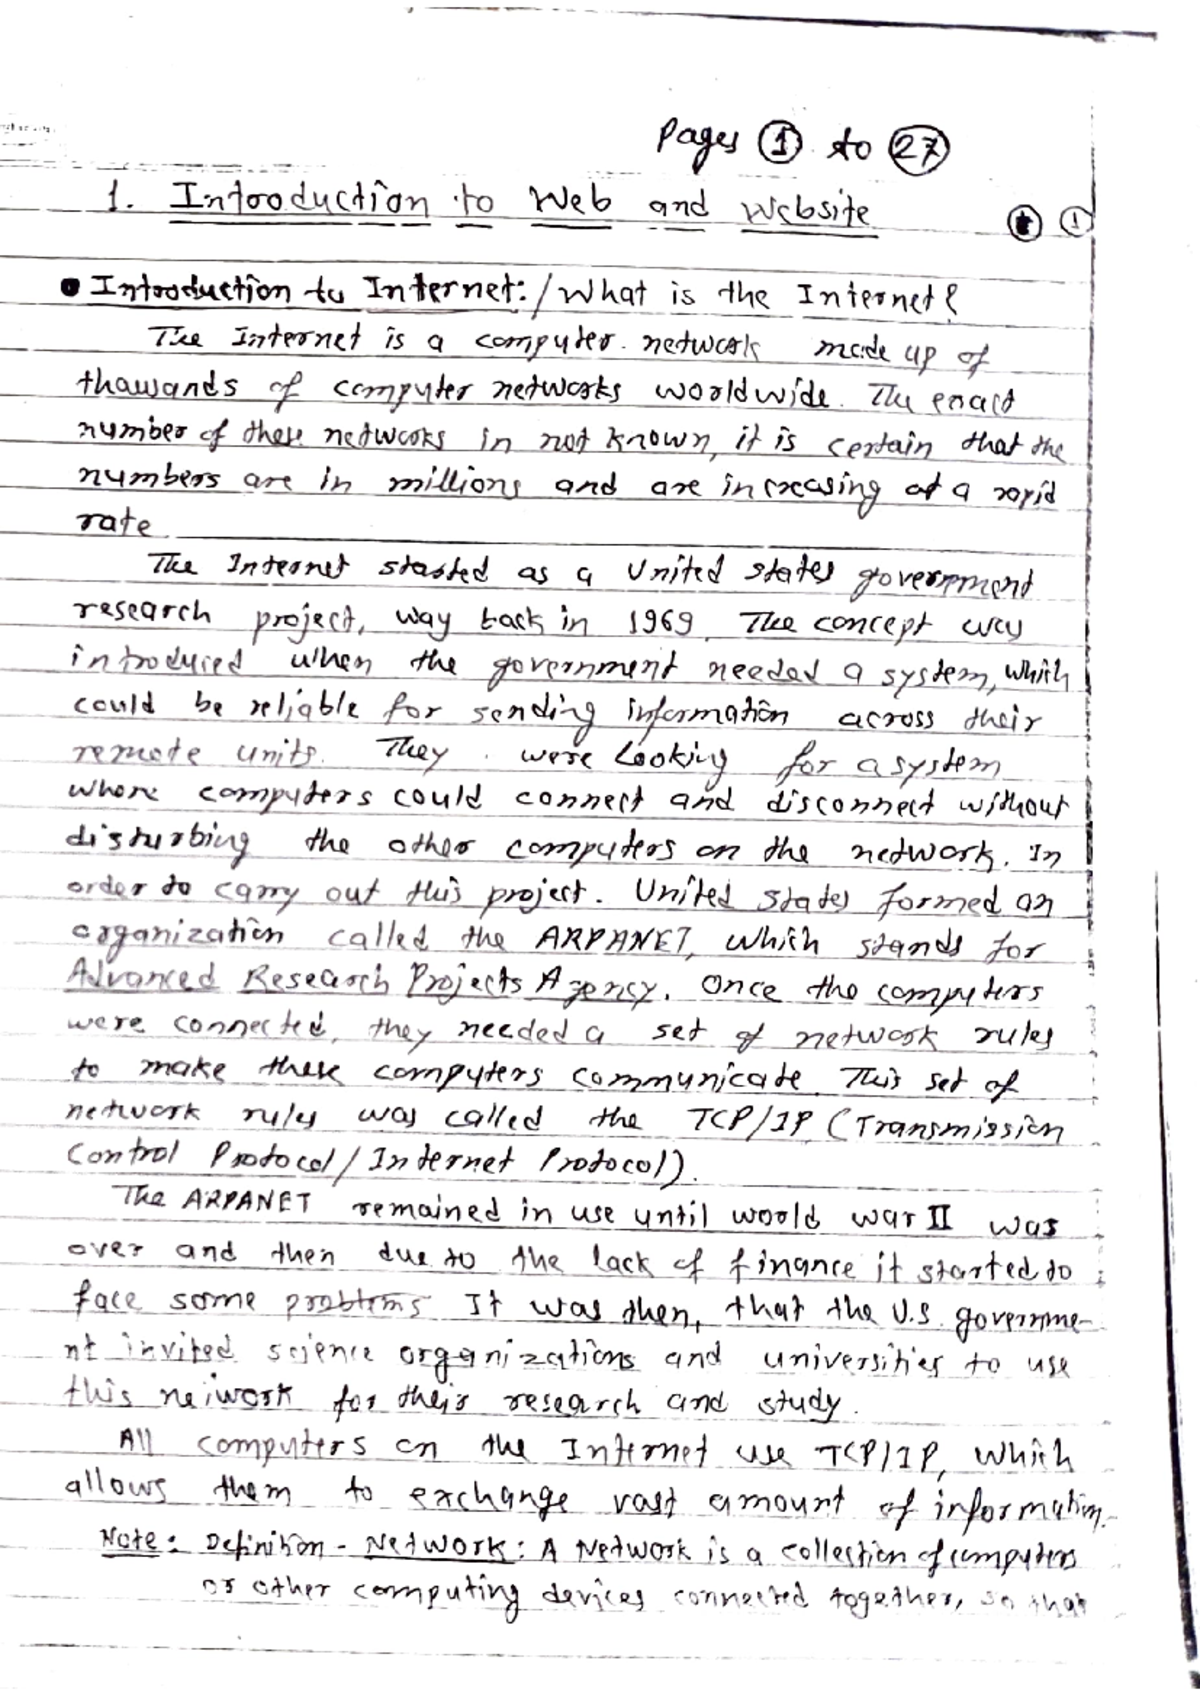 Pages 1 to 27
1. Introduction to Web and Website 1
Introduction to Internet: / What is the Internet?
The Internet is a computer network made up of
thousands of computer networks worldwide. The exact
number of these networks in not known, it is certain that the
numbers are in millions and are increasing at a rapid
rate
The Internet started as a United states government
research project, way back in 1969. The concept was
introduced when the government needed a system, which
could be reliable for sending information across their
remote units. They were looking for a system
where computers could connect and disconnect without
disturbing the other computers on the network. In
order to carry out this project. United States formed an
organization called the ARPANET, which stands for
Advanced Research Projects Agency. Once the computers
were connected, they needed a set of network rules
to make these computers communicate. This set of
network rules was called the TCP/IP (Transmission
Control Protocol/Internet Protocol).
The ARPANET remained in use until world war II was
over and then due to the lack of finance it started to
face some problems It was then, that the U.S. governme-
nt invited science organizations and universities to use
this network for their research and study.
All computers on the Internet use TCP/IP, which
allows them to exchange vast amount of information.
Note: Definition - Network: A Network is a collection of computers
or other computing devices connected together, so that